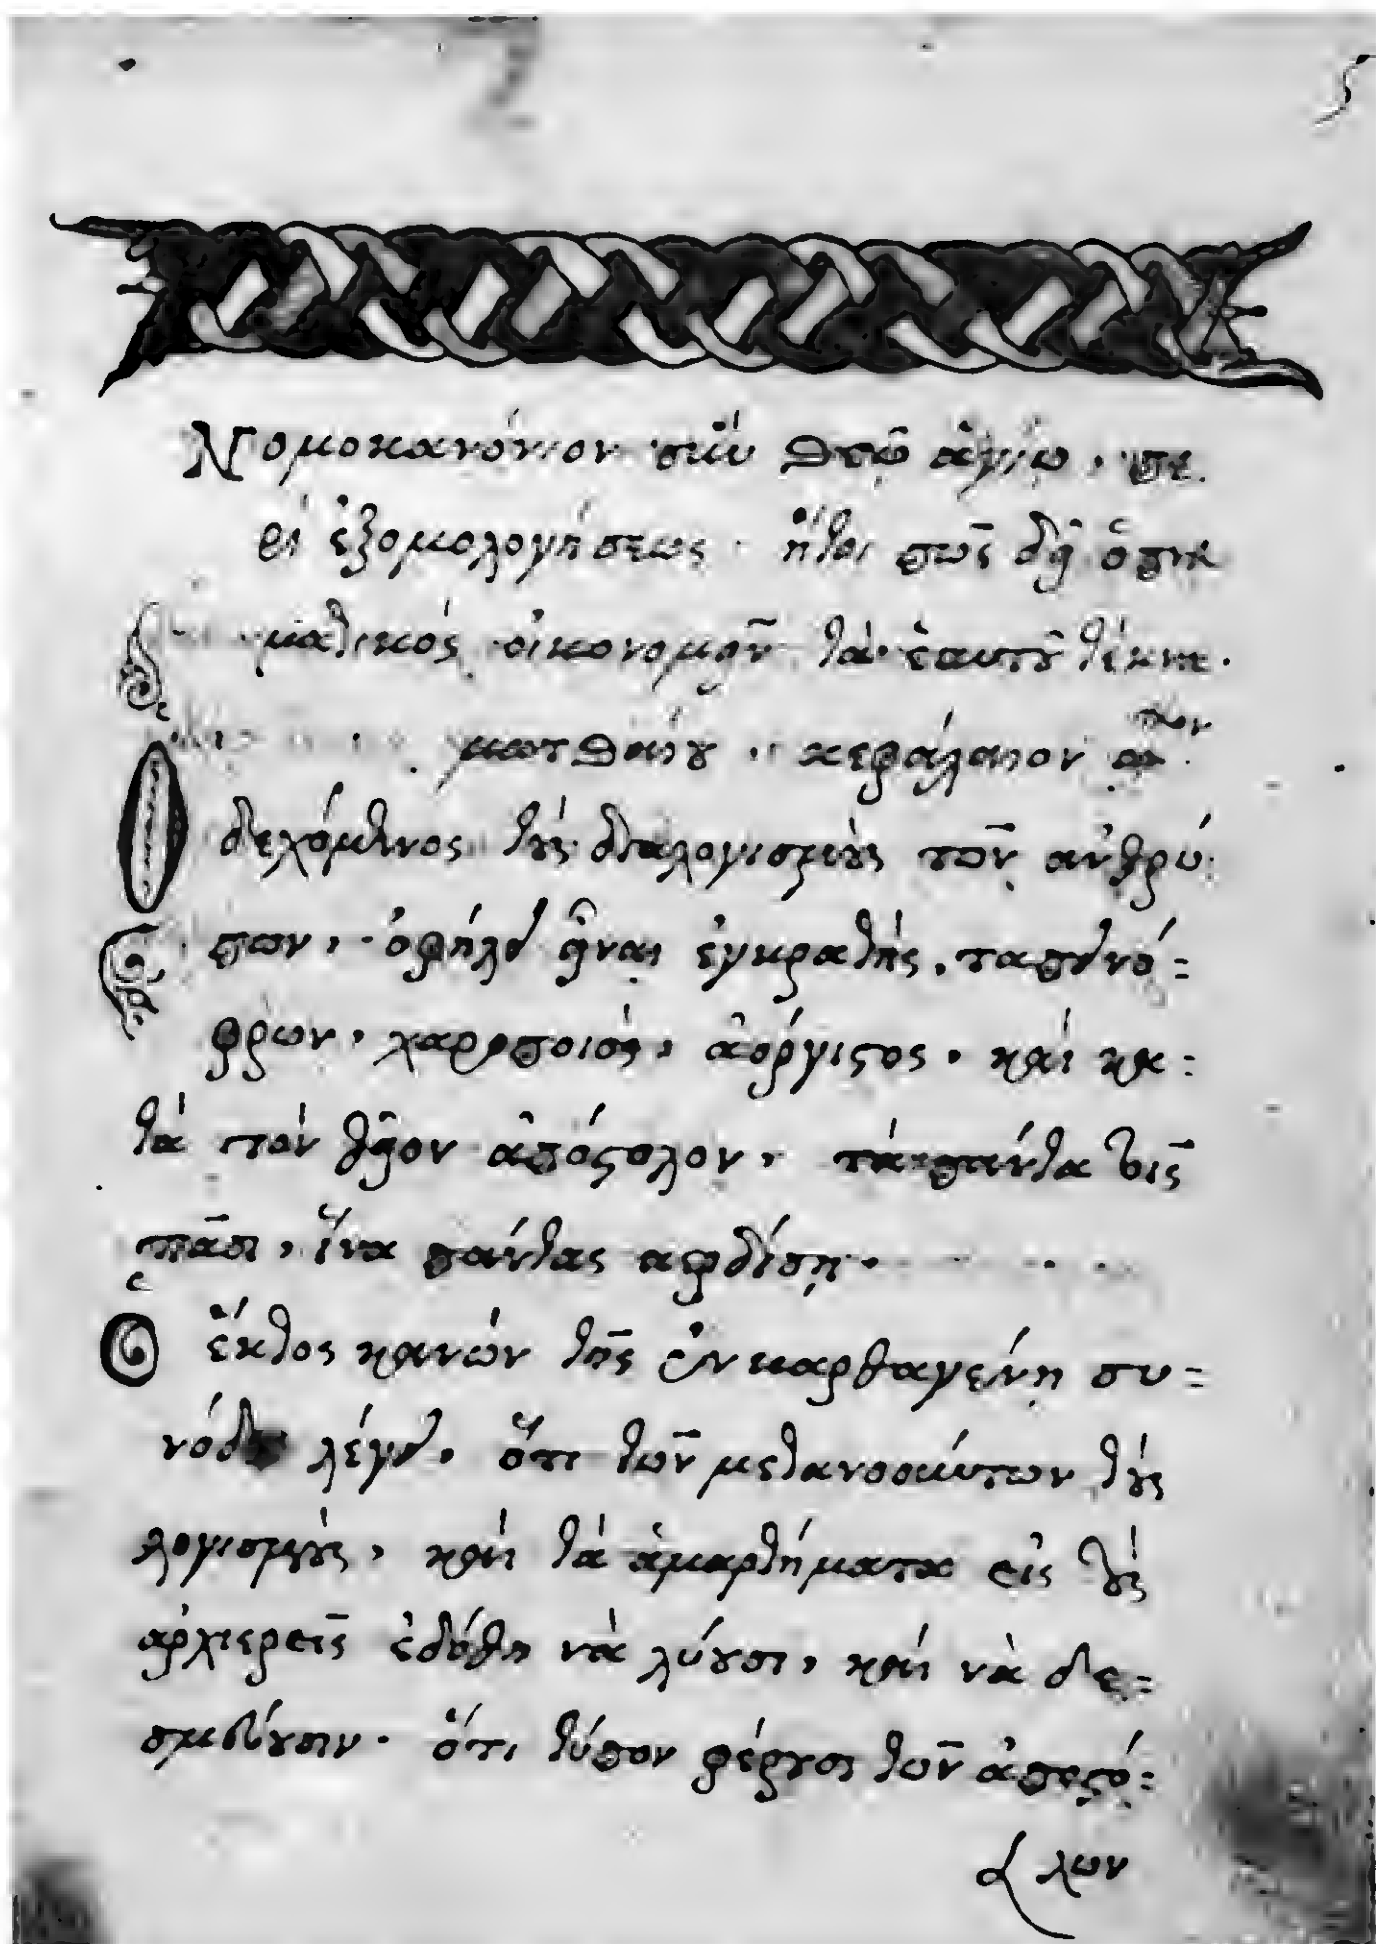 Νομοκανόνιον σὺν Θεῷ ἁγίῳ, πε
ρὶ ἐξομολογήσεως. ἤτοι πῶς δεῖ ὁ πνευ
ματικὸς οἰκονομεῖν τὰ ἑαυτοῦ τέκνα.
ματθαίου. κεφάλαιον αον.
Ὁ δεχόμενος τοὺς διαλογισμοὺς τῶν ἀνθρώ
πων, ὀφήλει εἶναι ἐγκρατὴς, ταπεινό=
φρων, χαροποιὸς, ἀόργιστος, καὶ κα=
τὰ τὸν θεῖον ἀπόστολον, τὰ πάντα τοῖς
πᾶσι, ἵνα πάντας κερδίσῃ.
Ὁ ἕκτος κανὼν τῆς ἐν καρθαγένῃ συ=
νόδου λέγει, ὅτι τῶν μετανοούντων τοὺς
λογισμοὺς, καὶ τὰ ἁμαρτήματα εἰς τοὺς
ἀρχιερεῖς ἐδόθη νὰ λύουσι, καὶ νὰ δε=
σμεύουσιν. ὅτι τύπον φέρουσι τῶν ἀποστό=
λων